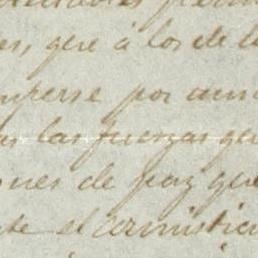 es, que á los de l
mperse por
las fuerzas qu
nes de paz que
te el armistici